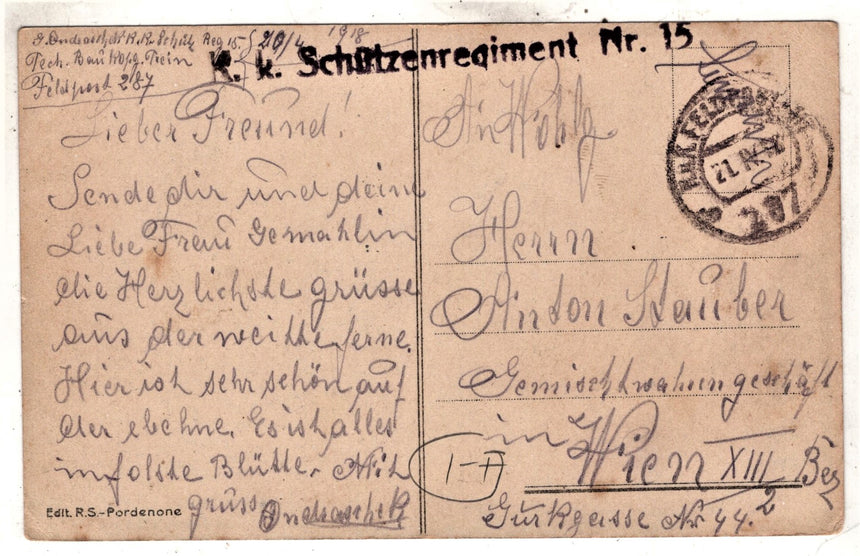 J. Ondraschek K.K. Schütz Reg 15. 20/4 1918
Tech. Baukopg. Train
Feldpost 287
K. k. Schützenregiment Nr. 15
K.u.K. FELDPOSTAMT
21. IV. 18
287
Lieber Freund!
Sende dir und deine
Liebe Frau Gemahlin
die Herzlichste grüsse
aus der weitte ferne.
Hier ist sehr schön auf
der ebehne. Es ist alles
in folste Blütte. Mit
grüss Ondraschek
Edit. R.S.-Pordenone
An Wohlg
Herrn
Anton Stauber
Gemischtwahrungeschäft
in Wien XIII Bez
Gurkgasse Nr 44.2
I-II